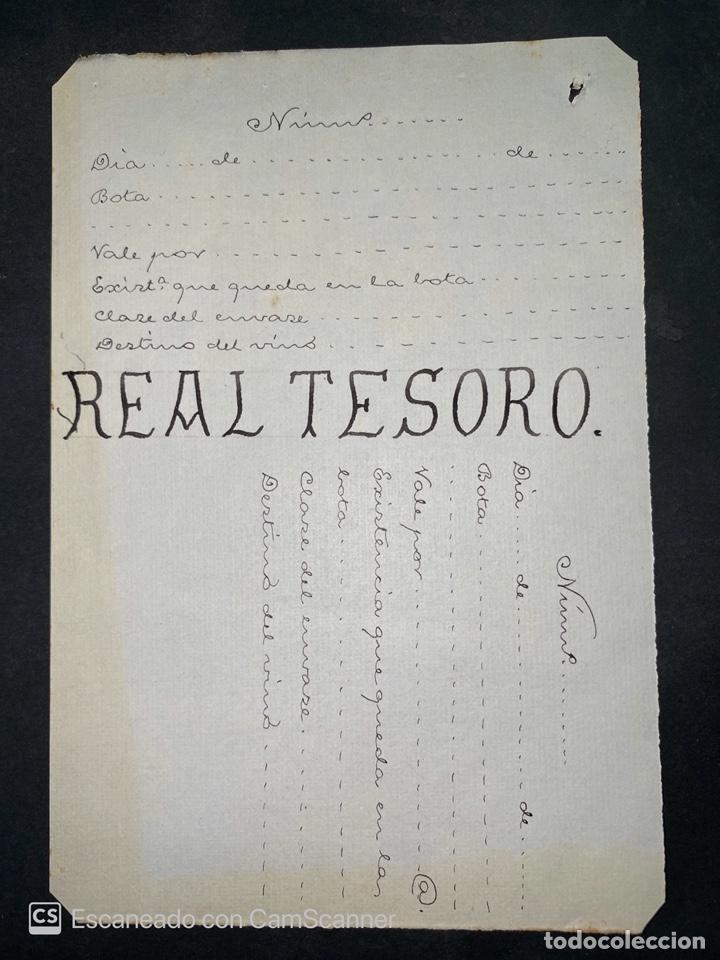 Núm.º.......
Dia.....de..................de......
Bota...........................
................................
Vale por........................
Exist.ª que queda en la bota.........
Clase del envase................
Destino del vino................
REAL TESORO.
Núm.º.......
Dia.....de..............de......
Bota......................
..........................
Vale por................@.
Existencia que queda en la
bota......................
Clase del envase..........
Destino del vino..........
CS Escaneado con CamScanner
todocoleccion